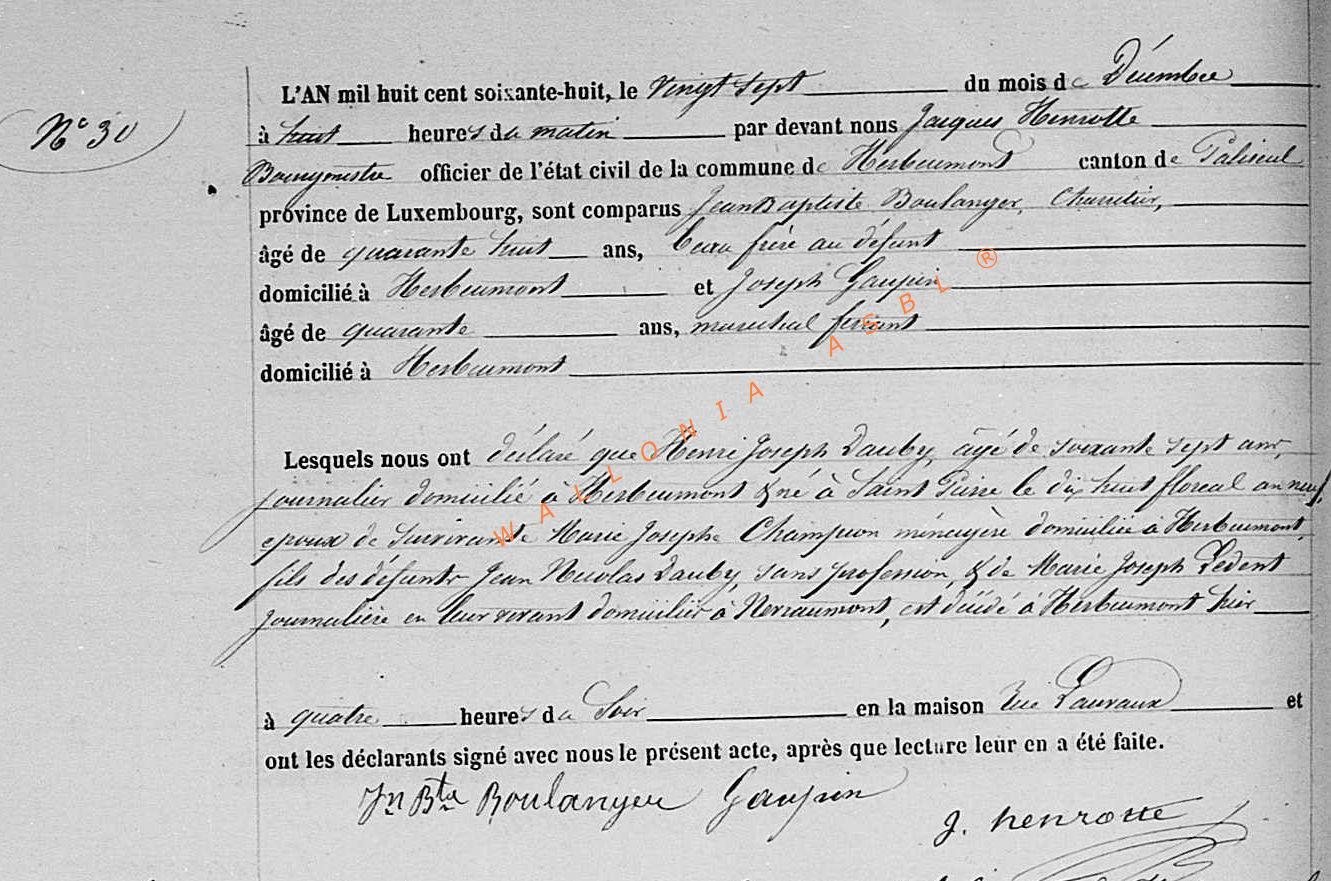 L'AN mil huit cent soixante-huit, le Vingt sept du mois de Décembre
N° 30
à huit heures du matin par devant nous Jacques Henrotte
Bourgmestre officier de l'état civil de la commune de Herbeumont canton de Paliseul
province de Luxembourg, sont comparus Jean Baptiste Boulanger, Charretier,
âgé de quarante huit ans, beau frère au défunt
domicilié à Herbeumont et Joseph Gaupin
âgé de quarante ans, marechal ferrant
domicilié à Herbeumont
Lesquels nous ont déclaré que Henri Joseph Dauby, âgé de soixante sept ans,
journalier domicilié à Herbeumont & né à Saint Pierre le dix huit floreal an neuf,
epoux de survivante Marie Josephe Champion ménagère domiciliée à Herbeumont,
fils des défunts Jean Nicolas Dauby, sans profession, & de Marie Joseph Ledent
journalière en leur vivant domiciliés à Verraumont, est décédé à Herbeumont hier
à quatre heures du Soir en la maison Rue Lauvaux et
ont les déclarants signé avec nous le présent acte, après que lecture leur en a été faite.
Jn Bte Boulanger Gaupin
J. henrotte
WALLONIA ASBL ®